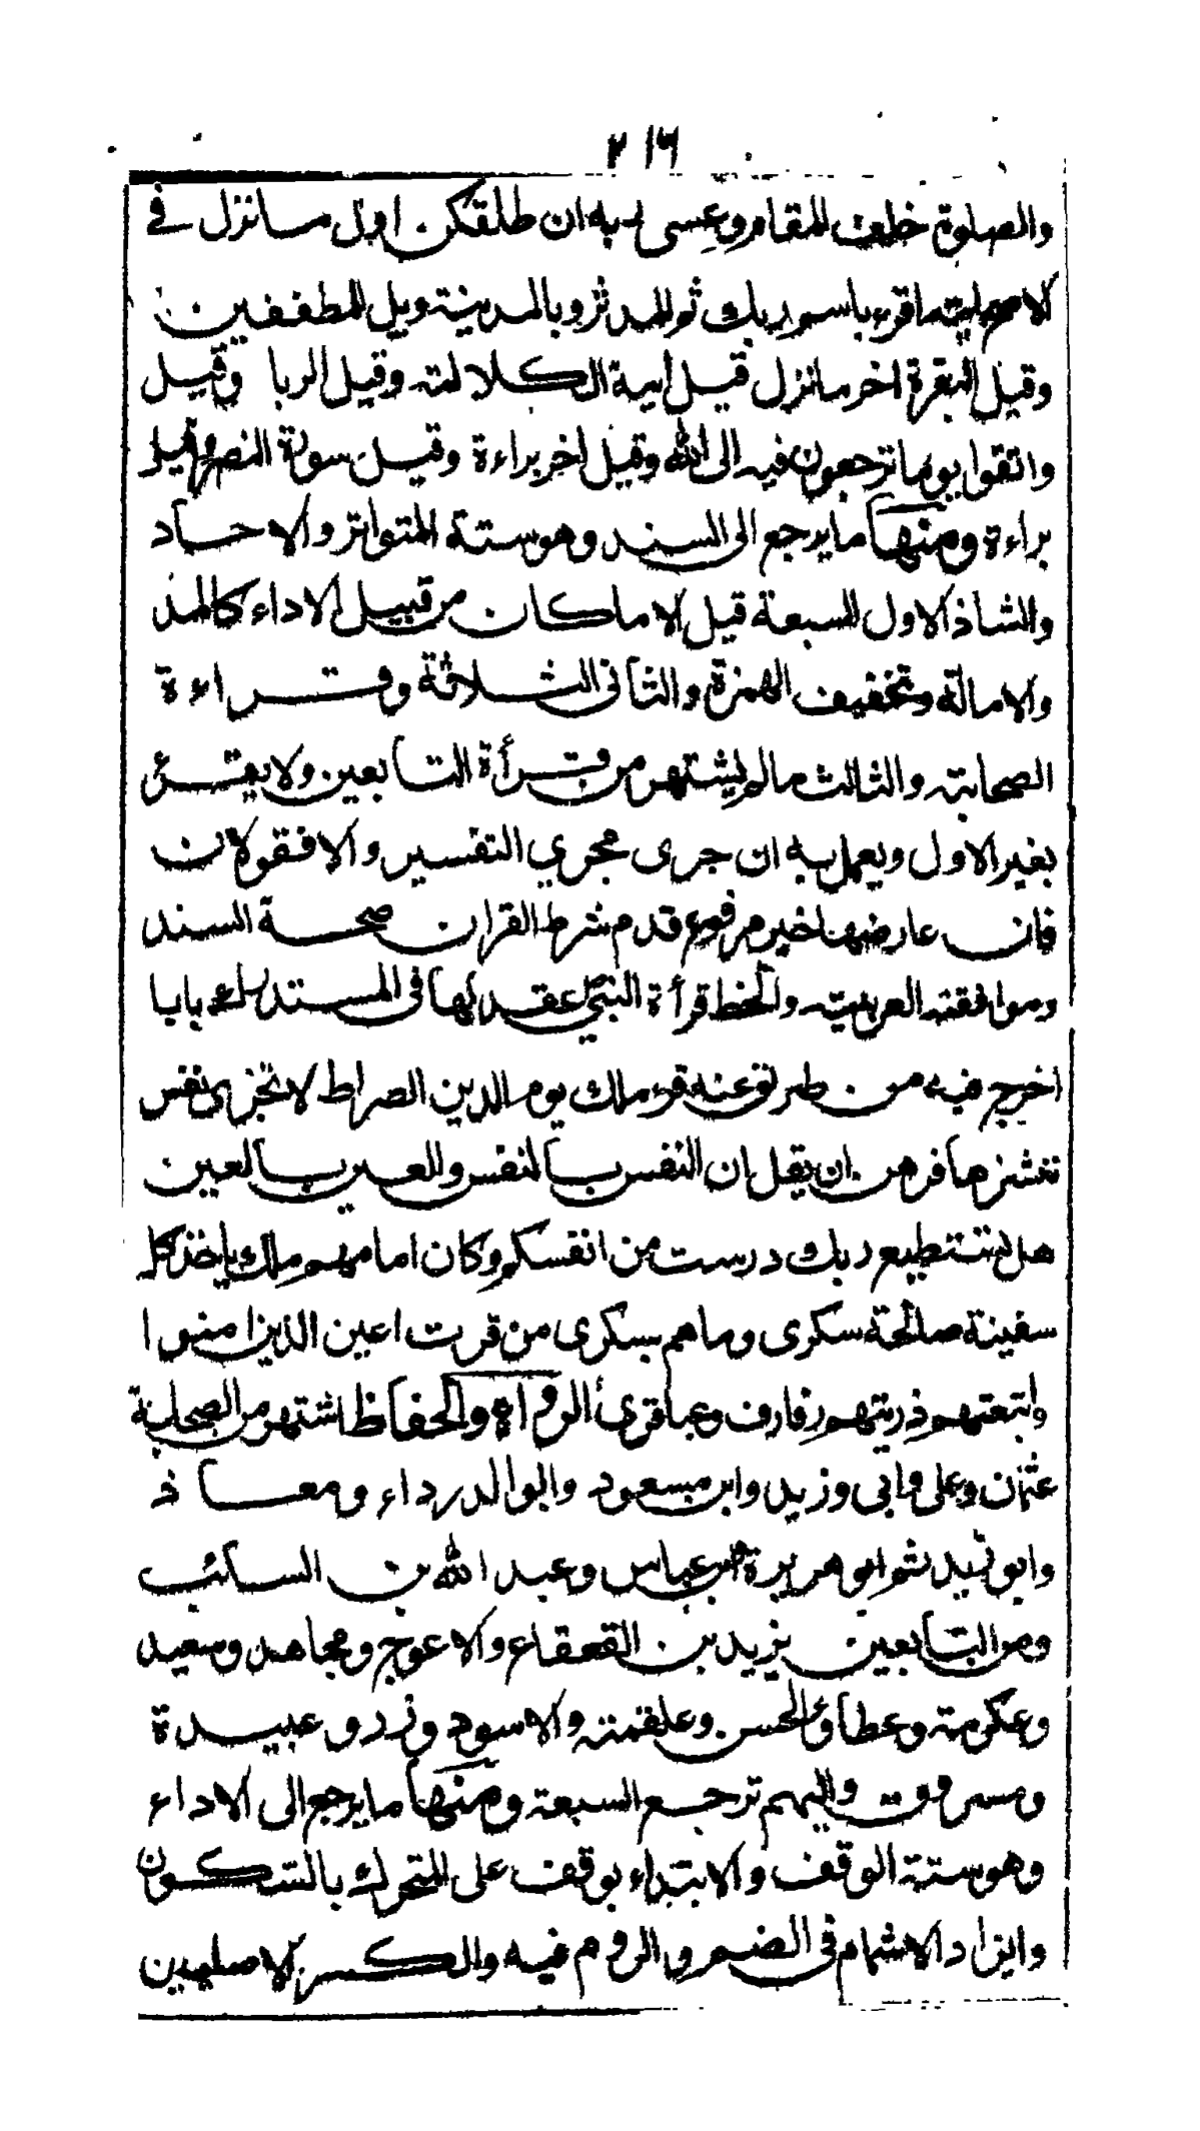 ٢١٦
والصلوة خلف المقام وعسى ربه ان طلقكن اول ما نزل في
الاصح انه اقرء باسم ربك ثم المدثر وبالمدينة ويل للمطففين
وقيل البقرة اخر ما نزل قيل اية الكلالة وقيل الربا وقيل
واتقوا يوما ترجعون فيه الى الله وقيل اخر براءة وقيل سورة النصر وقيل
براءة ومنها ما يرجع الى السند وهو ستة المتواتر والاحاد
والشاذ الاول السبعة قيل الا ما كان من قبيل الاداء كالمد
والامالة وتخفيف الهمزة والثاني الثلاثة وقراءة
الصحابة والثالث ما لم يشتهر من قرأة التابعين ولا يقرئ
بغير الاول ويعمل به ان جرى مجري التفسير والا فقولان
فان عارضها خبر مرفوع قدم شرط القران صحة السند
وموافقته العربية والخط قرأة النبي عقد لها في المستدرك بابا
اخرج فيه من طرق عنه قرء ملك يوم الدين الصراط لا تجزى نفس
ننشزها فرهن ان يغل ان النفس بالنفس والعين بالعين
هل تستطيع ربك درست من انفسكم وكان امامهم ملك ياخذ كل
سفينة صالحة سكرى وما هم بسكرى من قرت اعين الذين امنوا
واتبعتهم ذريتهم رفارف وعباقرى الرواة والحفاظ اشتهر من الصحابة
عثمان وعلى وابي وزيد وابن مسعود وابو الدرداء ومعاذ
وابو زيد ثم ابو هريرة وابن عباس وعبد الله بن السائب
ومن التابعين يزيد بن القعقاع والاعرج ومجاهد وسعيد
وعكرمة وعطاء والحسن وعلقمة والاسود وزر وعبيدة
ومسروق واليهم ترجع السبعة ومنها ما يرجع الى الاداء
وهو ستة الوقف والابتداء يوقف على المتحرك بالسكون
وايزاد الاشمام في الضم والروم فيه والكسر الاصليين